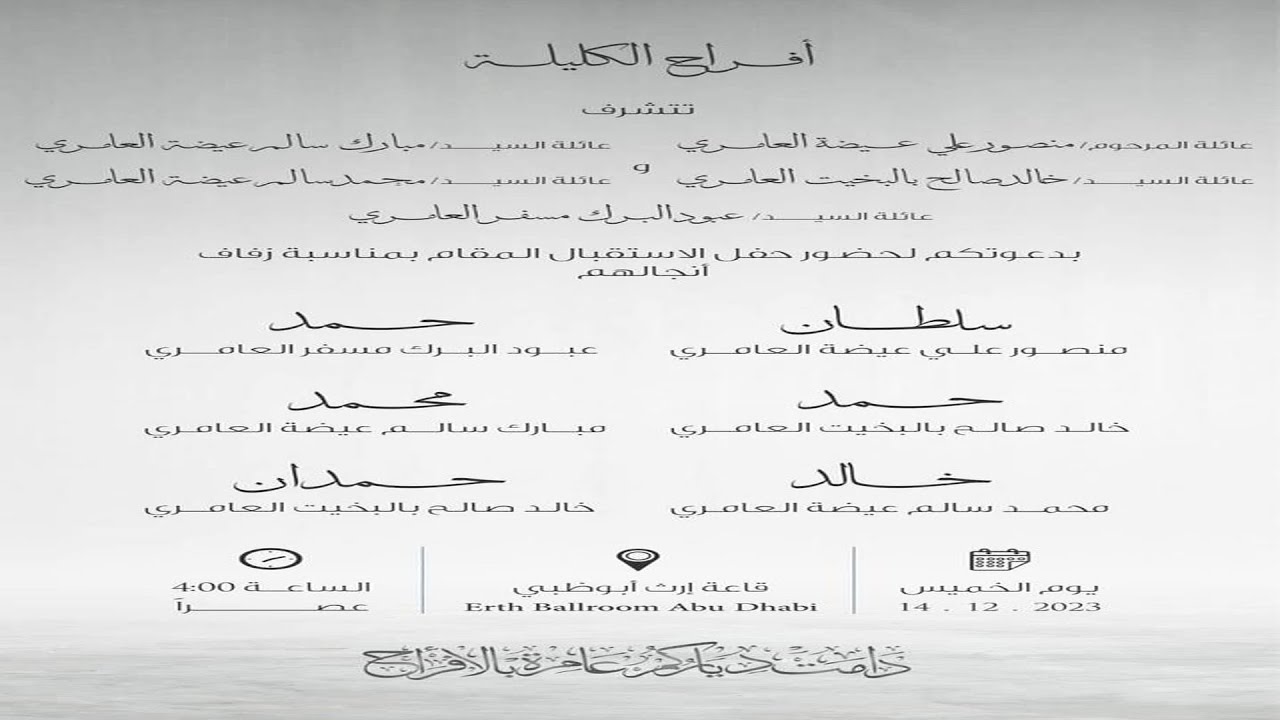 أفراح الكليلة
تتشرف
عائلة المرحوم/ منصور علي عيضة العامري
عائلة السيد/ مبارك سالم عيضة العامري
و
عائلة السيد/ خالد صالح بالبخيت العامري
عائلة السيد/ محمد سالم عيضة العامري
عائلة السيد/ عبود البرك مسفر العامري
بدعوتكم لحضور حفل الاستقبال المقام بمناسبة زفاف
أنجالهم
سلطان
منصور علي عيضة العامري
حمد
عبود البرك مسفر العامري
حمد
خالد صالح بالبخيت العامري
محمد
مبارك سالم عيضة العامري
خالد
محمد سالم عيضة العامري
حمدان
خالد صالح بالبخيت العامري
يوم الخميس
14 . 12 . 2023
قاعة إرث أبوظبي
Erth Ballroom Abu Dhabi
الساعة 4:00
عصراً
دامت دياركم عامرة بالأفراح